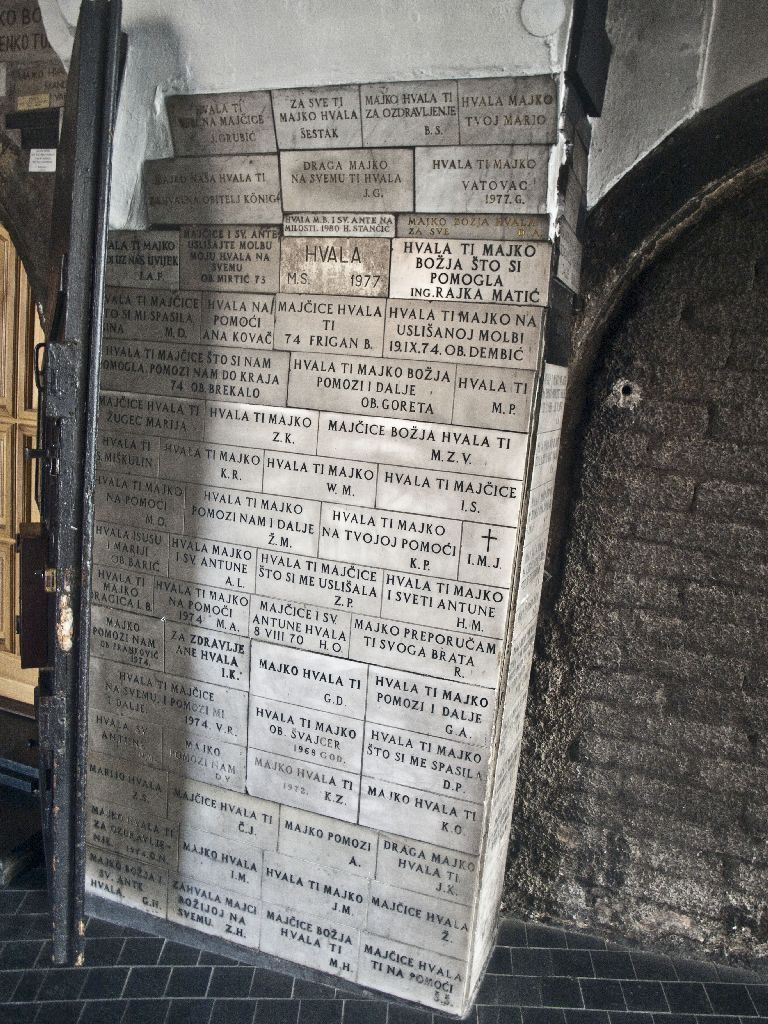 HVALA TI
J. GRUBIĆ
ZA SVE TI
MAJKO HVALA
ŠESTAK
MAJKO HVALA TI
ZA OZDRAVLJENJE
B.S.
HVALA MAJKO
TVOJ MARIO
MAJKO NAŠA HVALA TI
ZAHVALNA OBITELJ KÖNIG
DRAGA MAJKO
NA SVEMU TI HVALA
J.G.
HVALA TI MAJKO
VATOVAC
1977. G.
HVALA M.B. I SV. ANTE NA
MILOSTI. 1980 H. STANČIĆ
MAJKO BOŽJA HVALA
ZA SVE
HVALA TI MAJKO
UZ NAS UVIJEK
I.A.P.
MAJČICE I SV. ANTE
USLIŠAJTE MOLBU
MOJU HVALA NA
SVEMU
OB. MIRTIĆ 73
HVALA
M.S. 1977
HVALA TI MAJKO
BOŽJA ŠTO SI
POMOGLA
ING. RAJKA MATIĆ
HVALA TI MAJČICE
ŠTO SI MI SPASILA
M.D.
HVALA NA
POMOĆI
ANA KOVAČ
MAJČICE HVALA
TI
74 FRIGAN B.
HVALA TI MAJKO NA
USLIŠANOJ MOLBI
19.IX.74. OB. DEMBIĆ
HVALA TI MAJČICE ŠTO SI NAM
POMOGLA. POMOZI NAM DO KRAJA
74 OB. BREKALO
HVALA TI MAJKO BOŽJA
POMOZI I DALJE
OB. GORETA
HVALA TI
M.P.
MAJČICE HVALA TI
ŽUGEC MARIJA
HVALA TI MAJKO
Z.K.
MAJČICE BOŽJA HVALA TI
M.Z.V.
HVALA TI
S. MIŠKULIN
HVALA TI MAJKO
K.R.
HVALA TI MAJKO
W.M.
HVALA TI MAJČICE
I.S.
HVALA TI MAJKO
NA POMOĆI
M.D.
HVALA TI MAJKO
POMOZI NAM I DALJE
Ž.M.
HVALA TI MAJKO
NA TVOJOJ POMOĆI
K.P.
I.M.J.
HVALA ISUSU
I MARIJI
OB. BARIĆ
HVALA MAJKO
I SV. ANTUNE
A.L.
HVALA TI MAJČICE
ŠTO SI ME USLIŠALA
Z.P.
HVALA TI MAJKO
I SVETI ANTUNE
H.M.
HVALA TI
MAJKO
DRAGICA L.B.
HVALA TI MAJKO
NA POMOĆI
1974 M.A.
MAJČICE I SV.
ANTUNE HVALA
8 VIII 70 H.O.
MAJKO PREPORUČAM
TI SVOGA BRATA
R.
MAJKO
POMOZI NAM
OB. FRANKOVIĆ
1974.
ZA ZDRAVLJE
ANE HVALA
I.K.
MAJKO HVALA TI
G.D.
HVALA TI MAJKO
POMOZI I DALJE
G.A.
HVALA TI MAJČICE
NA SVEMU, I POMOZI MI
I DALJE
1974. V.R.
HVALA TI MAJKO
OB. ŠVAJCER
1969 GOD.
HVALA TI MAJKO
ŠTO SI ME SPASILA
D.P.
HVALA SV.
ANTUNE
MAJKO
POMOZI NAM
D.V.
MAJKO HVALA TI
1972. K.Z.
MAJKO HVALA TI
K.O.
MARIJO HVALA TI
Z.S.
MAJČICE HVALA TI
Č.J.
MAJKO POMOZI
A.
DRAGA MAJKO
HVALA TI
J.K.
MAJKO HVALA TI
ZA OZDRAVLJE-
NJE
MAJKO HVALA
I.M.
HVALA TI MAJKO
J.M.
MAJČICE HVALA
Ž.
MAJKO BOŽJA I
SV. ANTE
HVALA. G.H.
ZAHVALA MAJCI
BOŽIJOJ NA
SVEMU. Z.H.
MAJČICE BOŽJA
HVALA TI
M.H.
MAJČICE HVALA
TI NA POMOĆI
Š.Š.